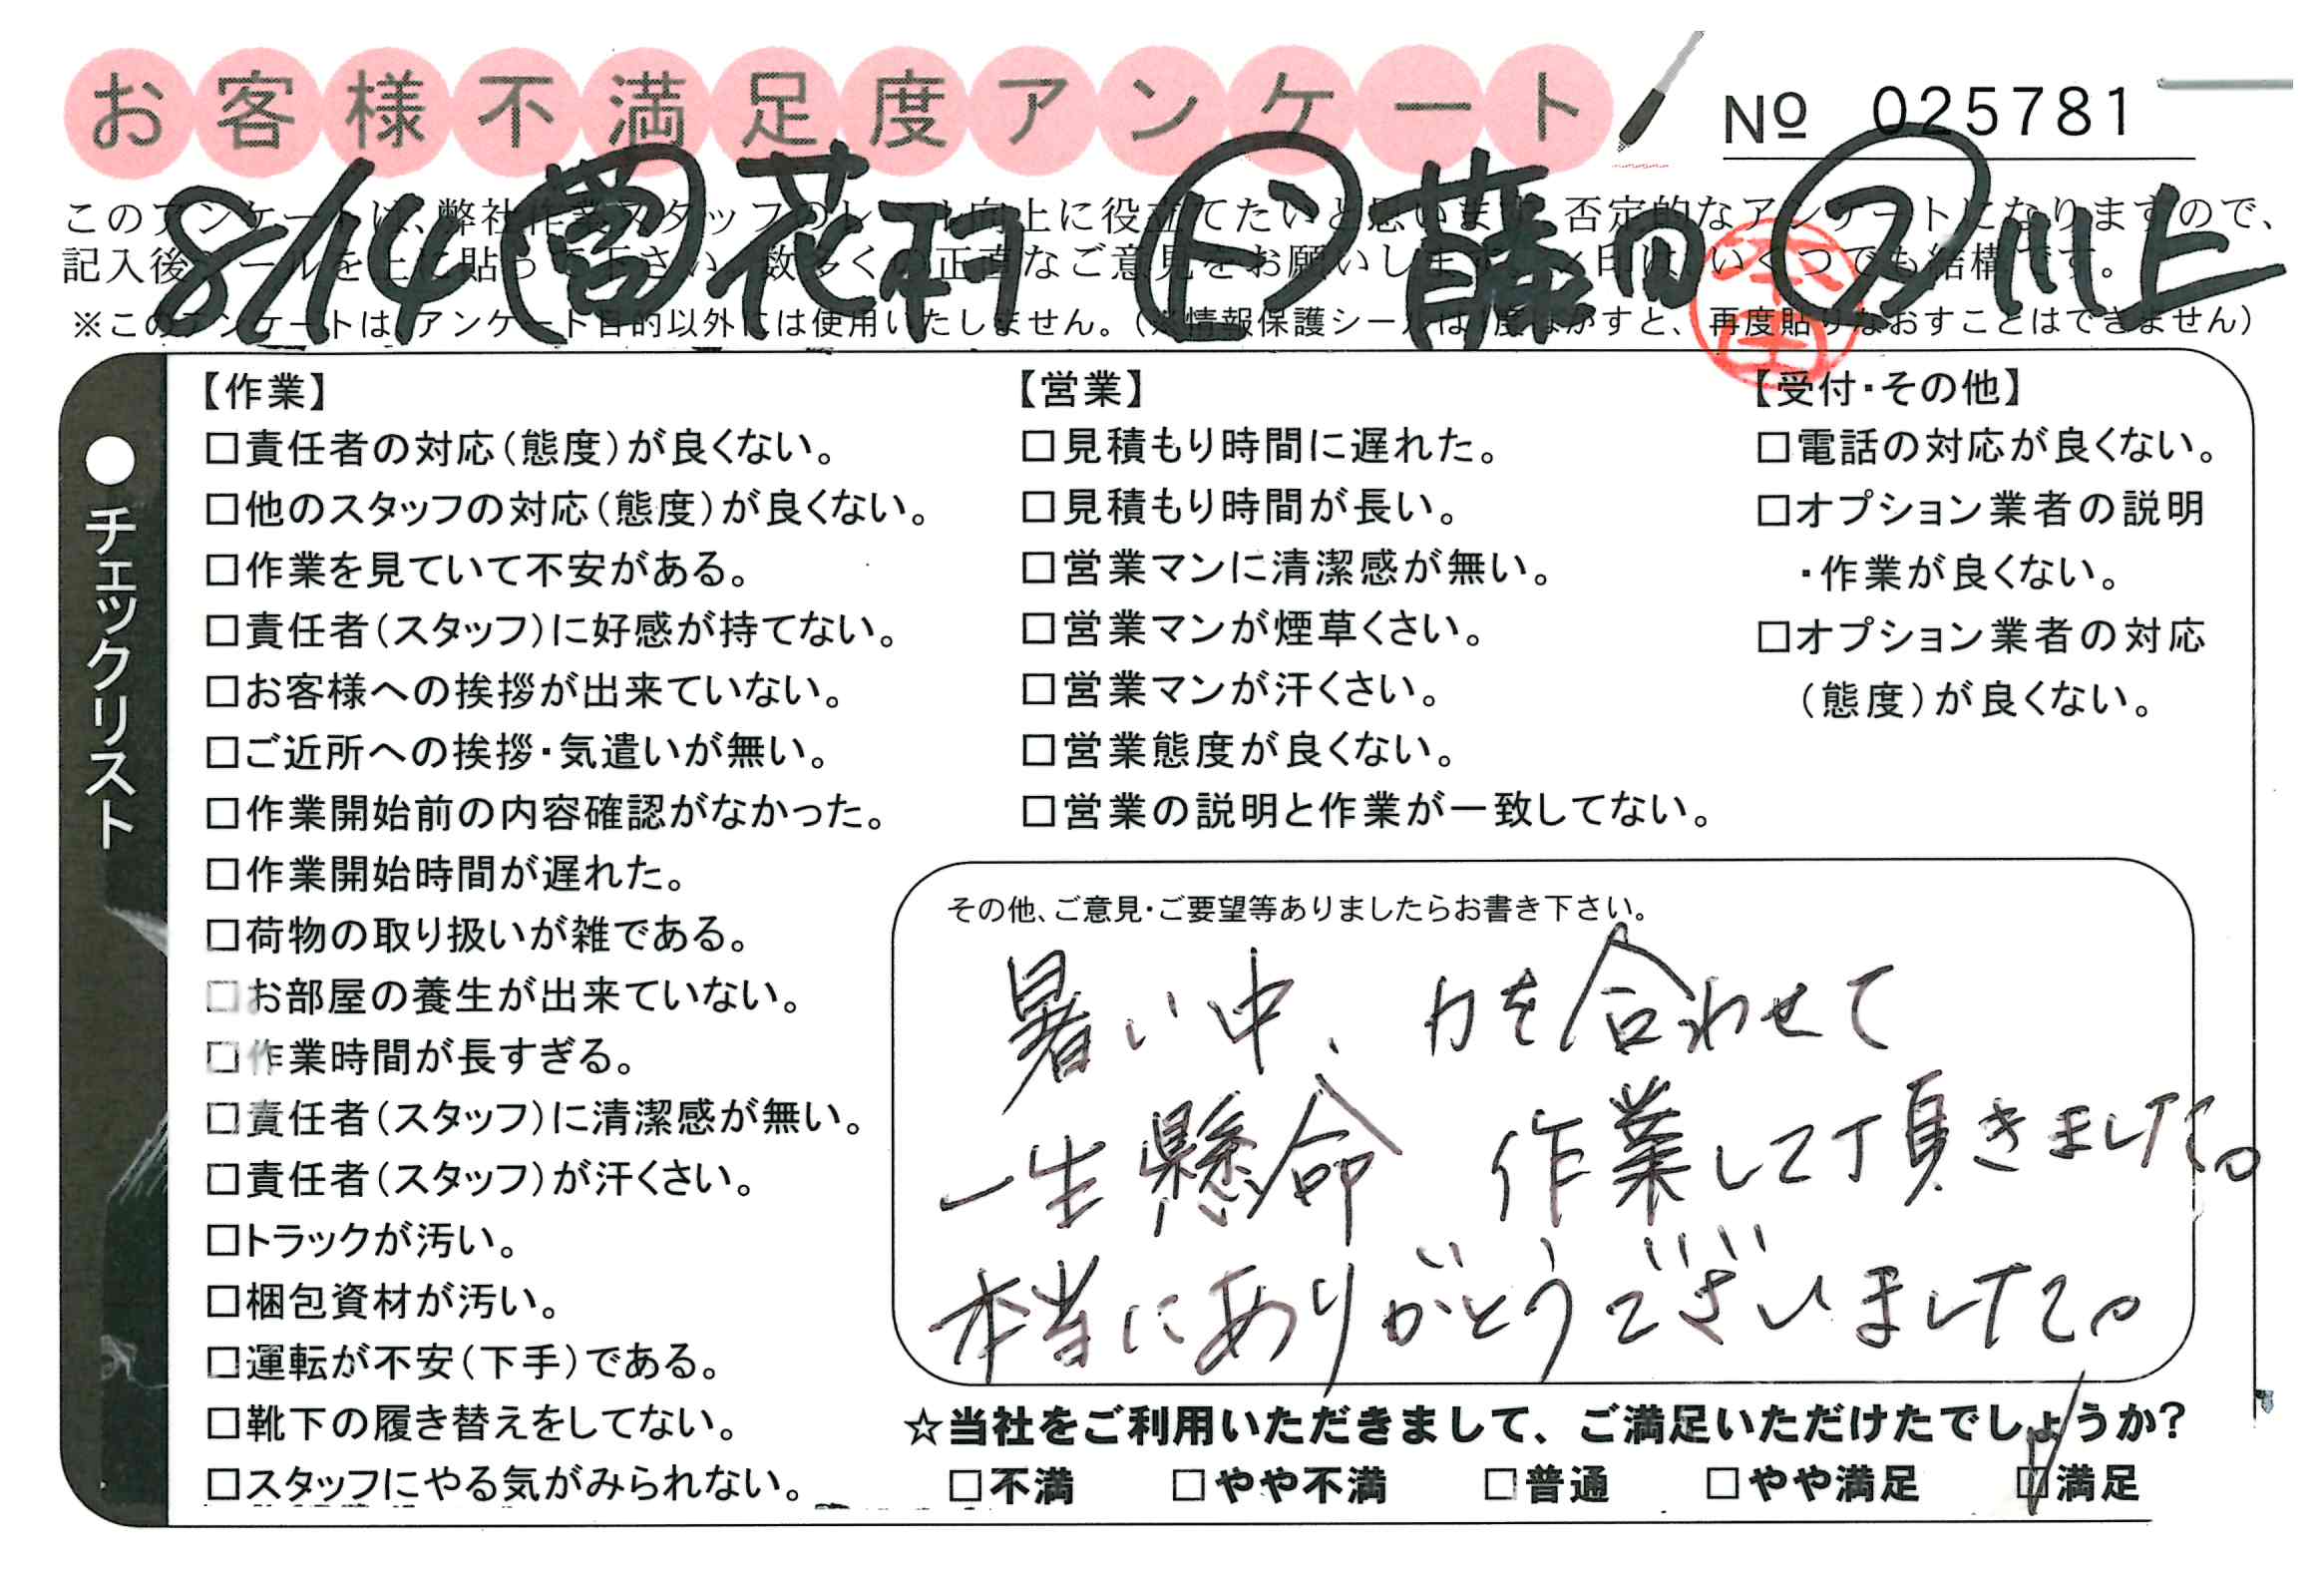 お客様不満足度アンケート
№ 025781
8/14 営 花村 ド 藤田 ス 川上
このアンケートは、弊社作業スタッフのレベル向上に役立てたいと思います。否定的なアンケートになりますので、
記入後シールを上に貼って下さい。数多くの正直なご意見をお願いします。レ印は、いくつでも結構です。
※このアンケートは、アンケート目的以外には使用いたしません。(
情報保護シールは
度はがすと、再度貼りなおすことはできません)
●チェックリスト
【作業】
□責任者の対応(態度)が良くない。
□他のスタッフの対応(態度)が良くない。
□作業を見ていて不安がある。
□責任者(スタッフ)に好感が持てない。
□お客様への挨拶が出来ていない。
□ご近所への挨拶・気遣いが無い。
□作業開始前の内容確認がなかった。
□作業開始時間が遅れた。
□荷物の取り扱いが雑である。
□お部屋の養生が出来ていない。
□作業時間が長すぎる。
□責任者(スタッフ)に清潔感が無い。
□責任者(スタッフ)が汗くさい。
□トラックが汚い。
□梱包資材が汚い。
□運転が不安(下手)である。
□靴下の履き替えをしてない。
□スタッフにやる気がみられない。
【営業】
□見積もり時間に遅れた。
□見積もり時間が長い。
□営業マンに清潔感が無い。
□営業マンが煙草くさい。
□営業マンが汗くさい。
□営業態度が良くない。
□営業の説明と作業が一致してない。
【受付・その他】
□電話の対応が良くない。
□オプション業者の説明
・作業が良くない。
□オプション業者の対応
(態度)が良くない。
その他、ご意見・ご要望等ありましたらお書き下さい。
暑い中、力を合わせて
一生懸命 作業して頂きました。
本当にありがとうございました。
☆当社をご利用いただきまして、ご満足いただけたでしょうか?
□不満 □やや不満 □普通 □やや満足 ☑満足